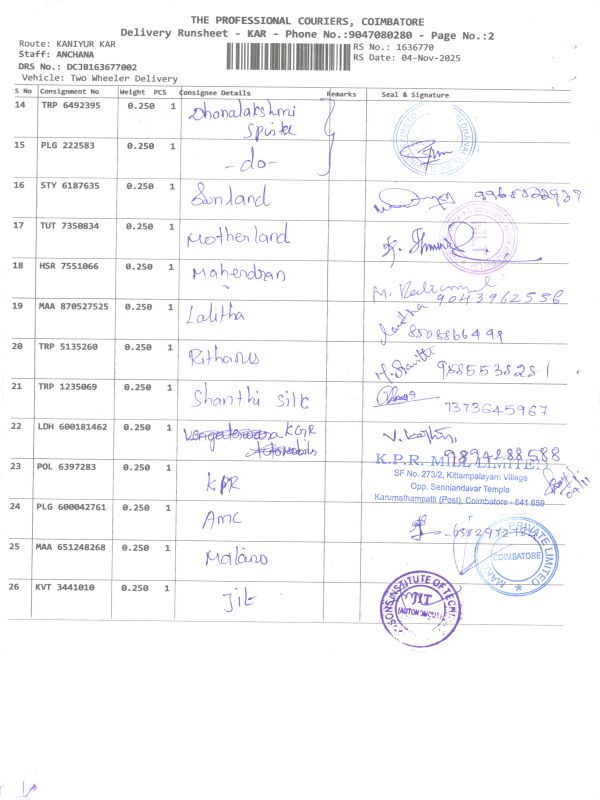 THE PROFESSIONAL COURIERS, COIMBATORE
Delivery Runsheet - KAR - Phone No.:9047080280 - Page No.:2
Route: KANIYUR KAR
Staff: ANCHANA
DRS No.: DCJB163677002
Vehicle: Two Wheeler Delivery
RS No.: 1636770
RS Date: 04-Nov-2025
S No Consignment No Weight PCS Consignee Details Remarks Seal & Signature
14 TRP 6492395 0.250 1 Dhanalakshmi
15 PLG 222583 0.250 1 -do-
16 STY 6187635 0.250 1 Sunland
17 TUT 7350834 0.250 1 Motherland
18 HSR 7551066 0.250 1 Mahendran
9043962556
19 MAA 870527525 0.250 1 Lalitha
20 TRP 5135260 0.250 1
21 TRP 1235069 0.250 1 Shanthi Silk
7373645967
22 LDH 600181462 0.250 1
9894288588
K.P.R. MILL LIMITE
SF No. 273/2, Kittampalayam Village
Opp. Senniandavar Temple
Karumathampatti (Post), Coimbatore - 641 659
04/11
23 POL 6397283 0.250 1 KPR
24 PLG 600042761 0.250 1 AMC
PRIVATE LIMITED
COIMBATORE
25 MAA 651248268 0.250 1
26 KVT 3441010 0.250 1 Jit
INSTITUTE OF TECH
JIT
(AUTONOMOUS)